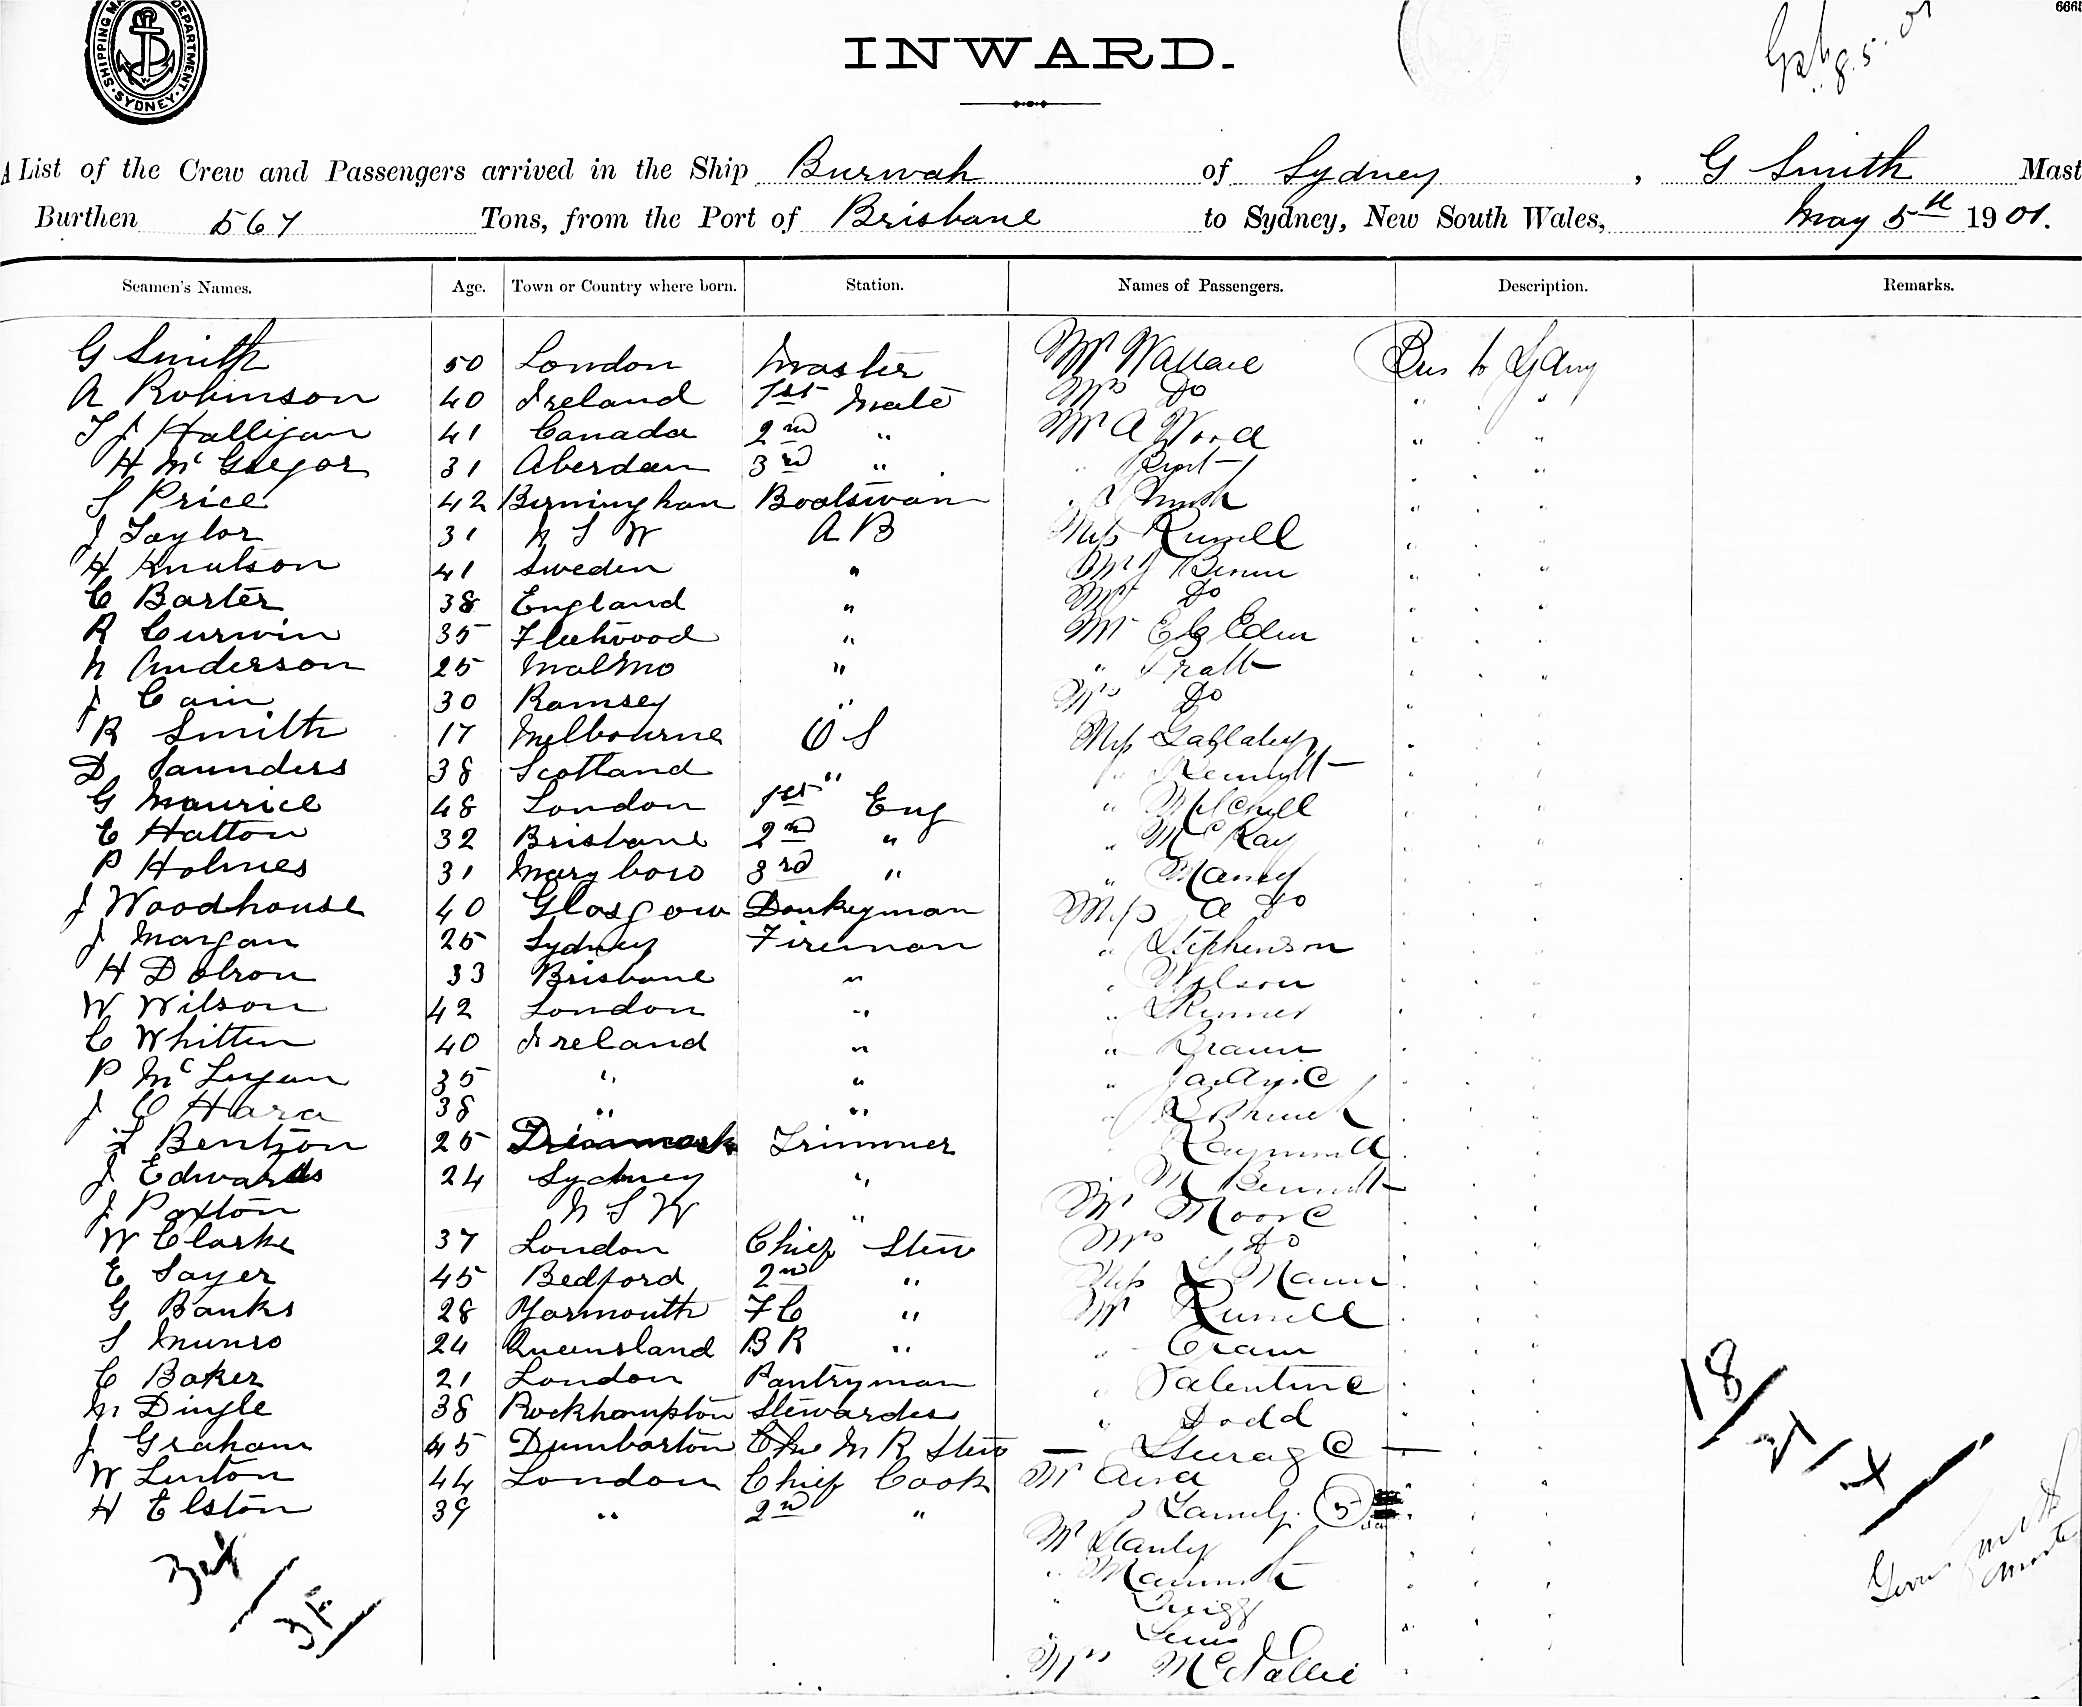 SHIPPING MA DEPARTMENT. SYDNEY.
6661
INWARD.
8.5.01
A List of the Crew and Passengers arrived in the Ship Burwah of Sydney, G Smith Mast
Burthen 567 Tons, from the Port of Brisbane to Sydney, New South Wales, May 5th 1901.
Seamen's Names. Age. Town or Country where born. Station. Names of Passengers. Description. Remarks.
G Smith 50 London Master Mr Wallace Bris to Sydny
A Robinson 40 Ireland 1st Mate Mrs Do " "
T J Halligan 41 Canada 2nd " Mr A Wood " "
H McGregor 31 Aberdeen 3rd "
S Price 42 Birmingham Boatswain " Smith
J Taylor 31 N S W A B Miss Russell
H Knutson 41 Sweden " Mr J
C Barter 38 England " Do
R Curwin 35 Fleetwood " Mr E G Eden
N Anderson 25 Malmo " " Pratt
J Cain 30 Ramsey " Mrs Do
R Smith 17 Melbourne O S Miss
D Saunders 38 Scotland "
G Maurice 48 London 1st Eng " Mitchell
E Hatton 32 Brisbane 2nd " " McKay
P Holmes 31 Maryboro 3rd " "
J Woodhouse 40 Glasgow Donkeyman Miss A Do
J Morgan 25 Sydney Fireman " Stephenson
H Dobron 33 Brisbane " " Wilson
W Wilson 42 London " " Skinner
C Whitten 40 Ireland " " Braun
P McLugan 35 " " "
J O Hara 38 " "
Bentzon 25 Drenmark Trimmer
J Edwards 24 Sydney " M Bennett
J Paxton N S W " Mr Moore
W Clarke 37 London Chief Stew Mrs Do
E Sayer 45 Bedford 2nd " Miss Mann
G Banks 28 Yarmouth F C " Mr Russell
S Munro 24 Queensland B R " " Cram
C Baker 21 London Pantryman " Valentine
M Dingle 38 Rockhampton Stewardess " Dodd
J Graham 45 Dumbarton M R Stew — Steerage —
W Linton 44 London Chief Cook Mr
H Elston 39 " 2nd " Family. 5
Mr Stanly
" Quigg
Mrs
18